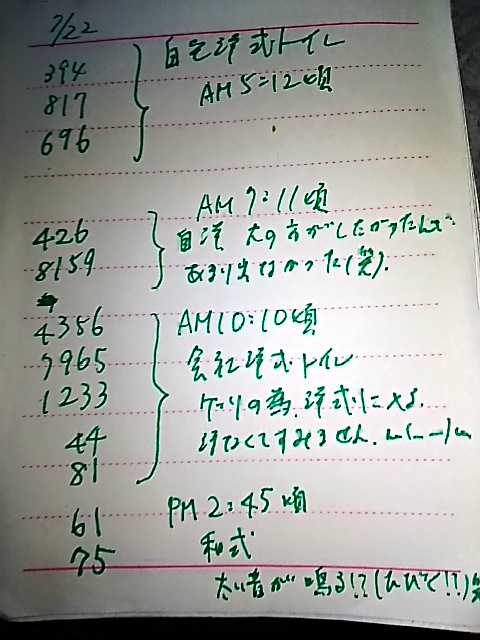 7/22
394
817
696
自宅洋式トイレ
AM5:12頃
426
8159
AM7:11頃
自洋 大の方がしたかったんで
あまり出なかった(笑).
4356
7965
1233
44
81
AM10:10頃
会社洋式トイレ
ゲリの為、洋式に
なくてすみません. m(_ _)m
61
75
PM2:45頃
和式
太い音が鳴る!?(ひびく!!)笑